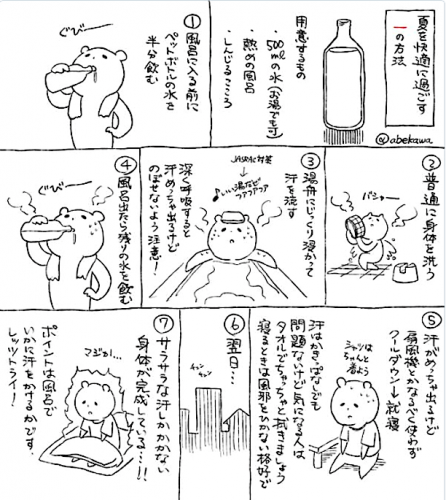 夏を快適に過ごす
一の方法
@abekawa
用意するもの
・500mlの水(お湯でも可)
・熱めの風呂
・しんじるこころ
①
風呂に入る前に
ペットボトルの水を
半分飲む
ぐびー
②
普通に身体を洗う
バシャー
③
湯舟にじっくり浸かって
汗を流す
JASRAC対策
♪いい湯なだ
ヮアヮアヮア
深く呼吸すると
汗めっちゃ出るけど
のぼせないよう注意!
④
風呂出たら残りの水を飲む
ぐびー
⑤
汗がめっちゃ出るけど
扇風機とかなるべく使わず
クールダウン→就寝
シャツは
ちゃんと
着よう
汗はかきっぱなしでも
問題ないけど気になる人は
タオルでちゃちゃっと拭きましょう
寝るときは風邪をひかない格好で
⑥
翌日…
⑦
サラサラな汗しかかかない
身体が完成している…!!
マジか…
ポイントは風呂で
いかに汗をかけるかです。
レッツトライ!